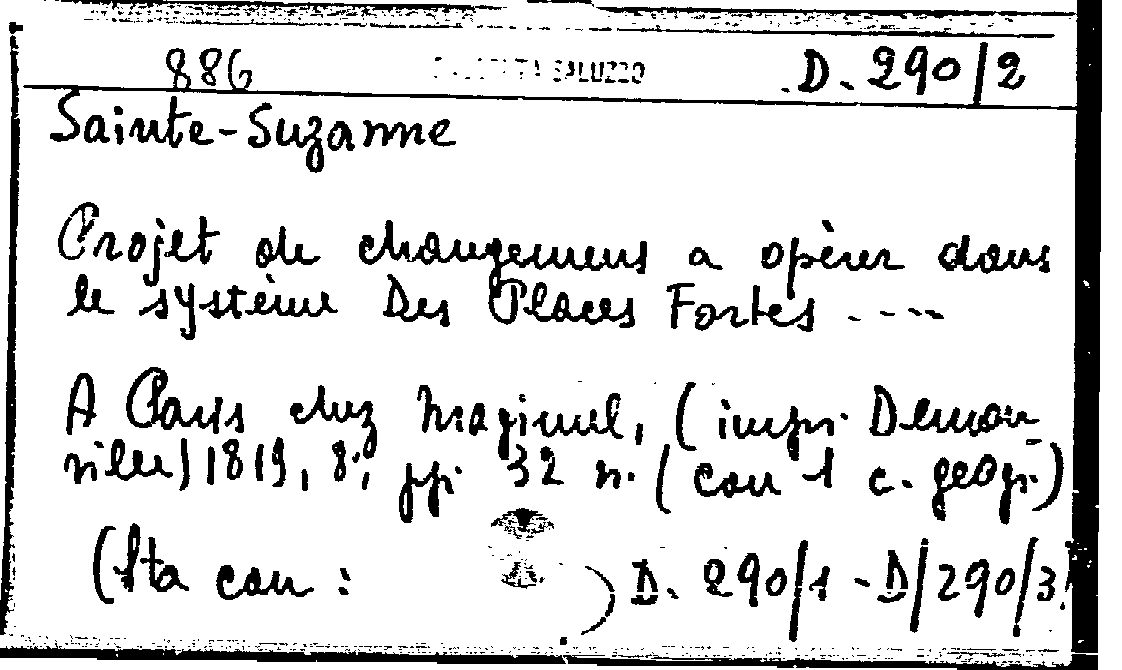 886 RACCOLTA SALUZZO D. 290/2
Sainte-Suzanne
Projet de changemens a opèrer dans
le système Des Places Fortes ----
A Paris chez Magimel, (impr. Demon-
ville) 1819, 8°, pp. 32 n. (con 1 c. geogr.)
(Sta con: ) D. 290/1 - D/290/3!